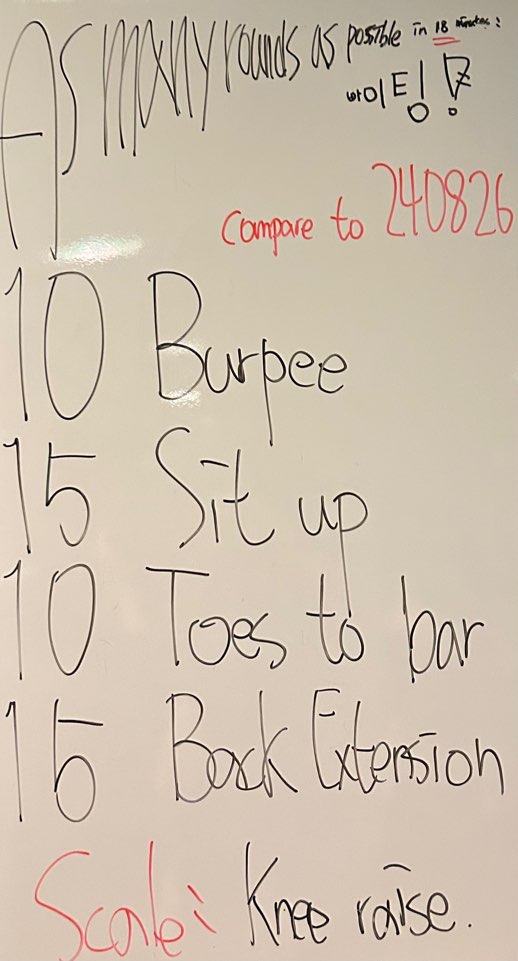 As many rounds as possible in 18 minutes:
Compare to 240826
10 Burpee
15 Sit up
10 Toes to bar
15 Back Extension
Scale: Knee raise.